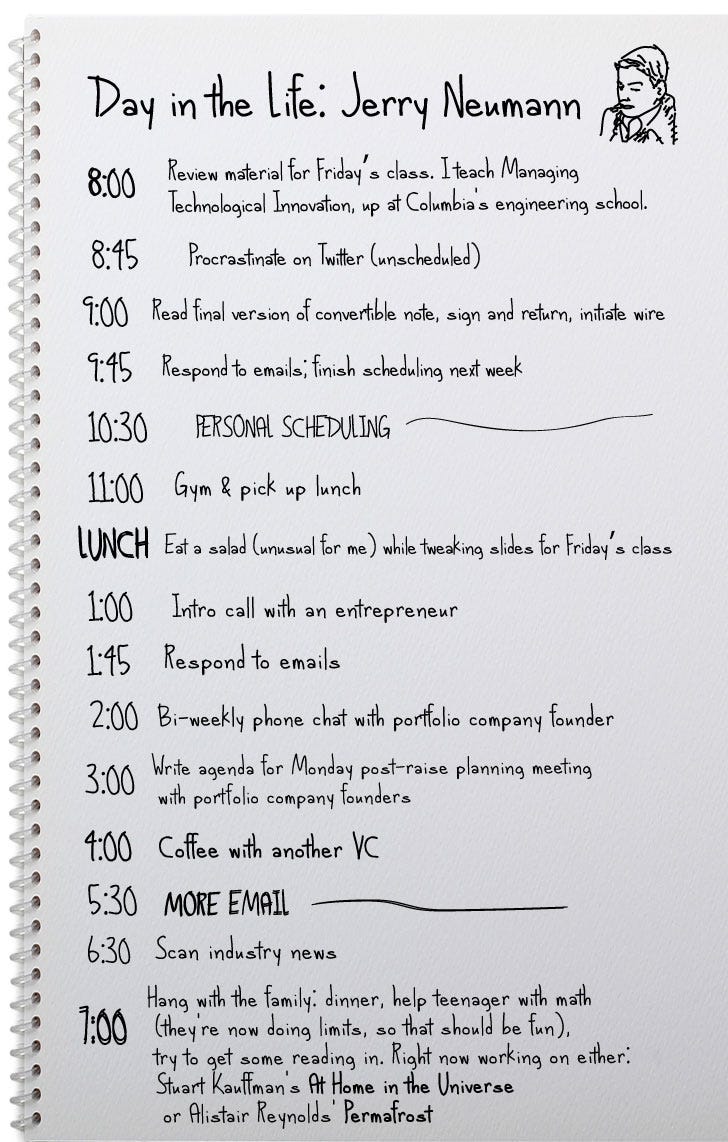 Day in the Life: Jerry Neumann
8:00 Review material for Friday's class. I teach Managing
Technological Innovation, up at Columbia's engineering school.
8:45 Procrastinate on Twitter (unscheduled)
9:00 Read final version of convertible note, sign and return, initiate wire
9:45 Respond to emails; finish scheduling next week
10:30 PERSONAL SCHEDULING
11:00 Gym & pick up lunch
LUNCH Eat a salad (unusual for me) while tweaking slides for Friday's class
1:00 Intro call with an entrepreneur
1:45 Respond to emails
2:00 Bi-weekly phone chat with portfolio company founder
3:00 Write agenda for Monday post-raise planning meeting
with portfolio company founders
4:00 Coffee with another VC
5:30 MORE EMAIL
6:30 Scan industry news
7:00 Hang with the family: dinner, help teenager with math
(they're now doing limits, so that should be fun),
try to get some reading in. Right now working on either:
Stuart Kauffman's At Home in the Universe
or Alistair Reynolds' Permafrost